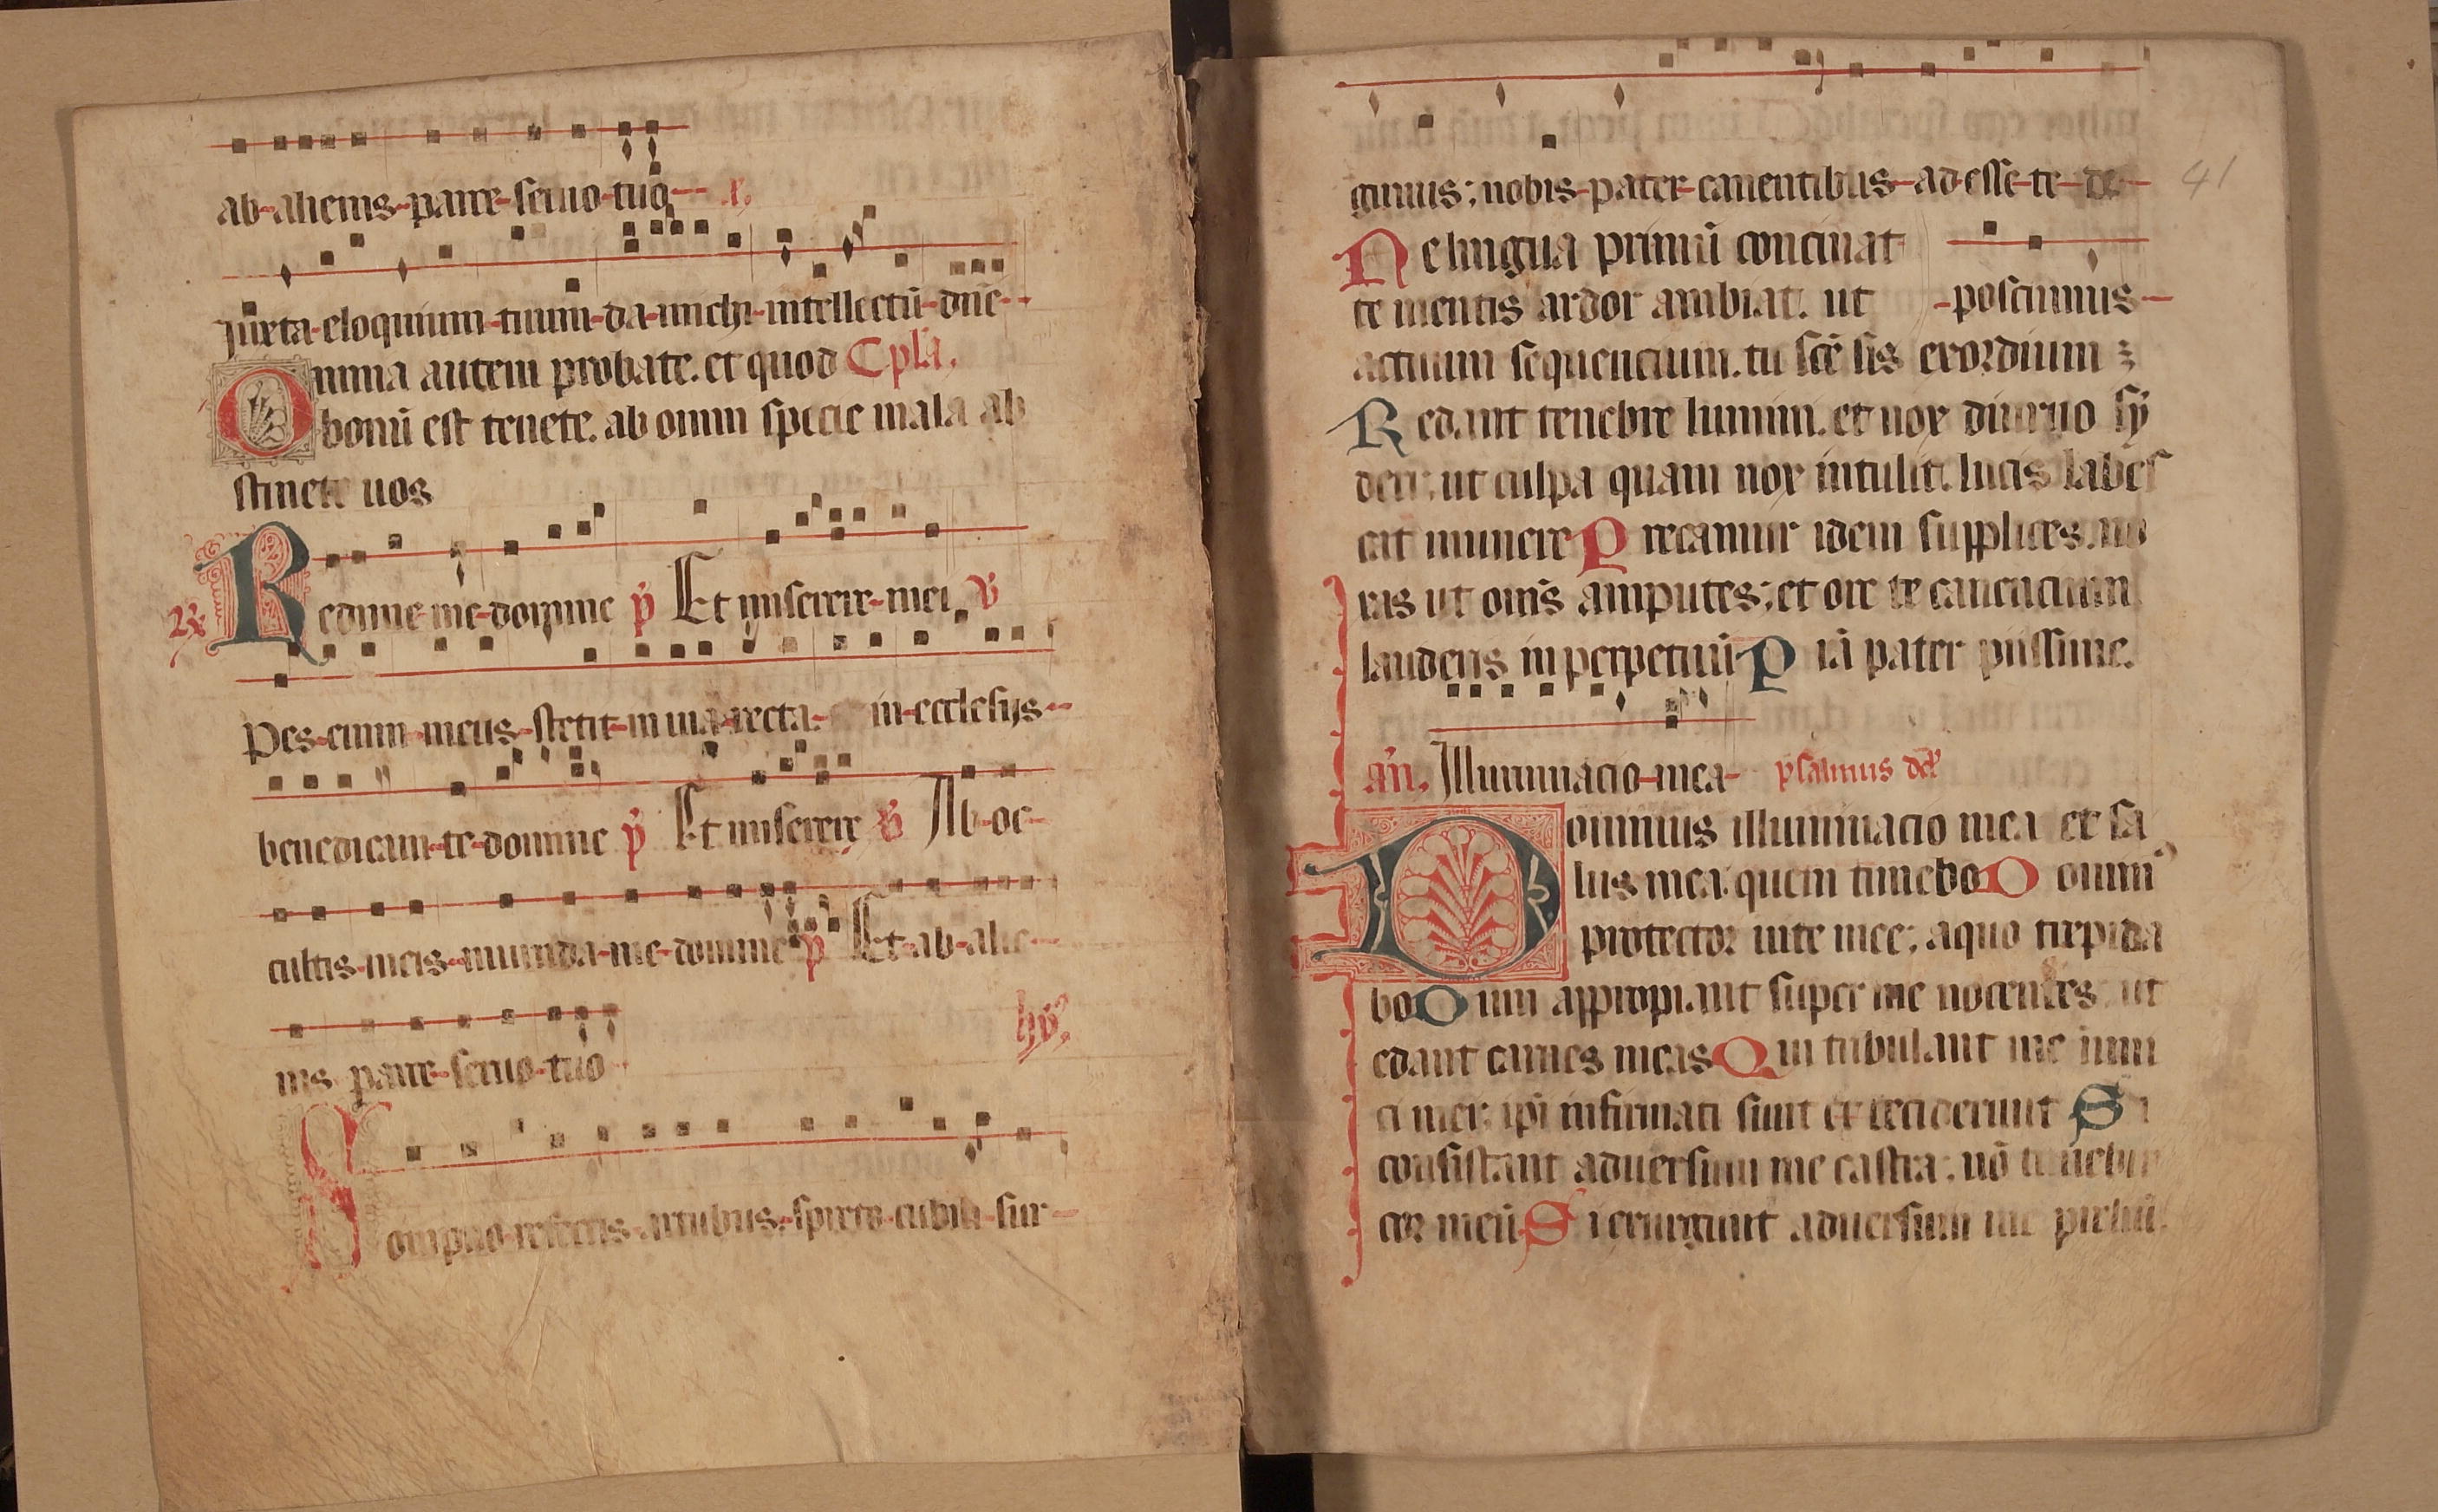 ab-alienis-parce-seruo-tuo- x.
Iuxta-eloquium-tuum-da-michi-intellectū-dn̄e-
Omnia autem probate. et quod Cpl̄a.
bonū est tenete. ab omni specie mala ab
stinete uos
Redime-me-domine p̄ Et miserere-mei. v̄
Pes-enim-meus-stetit-in uia-recta- in-ecclesijs-
benedicam-te-domine p̄ Et miserere v̄ Ab-oc-
cultis-meis-munda-me-domine p̄ Et-ab-alie-
nis parce-seruo-tuo
hȳ.
Sompno-refectis-artubus.-spreto-cubili-sur-
gimus; nobis-pater-canentibus-ad-esse-te-de-
41
Ne lingua primū concinat
te mentis ardor ambiat. ut -poscimus-
actuum sequencium. tu sc̄e sis exordium
Redant tenebre lumini. et nox diurno sy
deri. ut culpa quam nox intulit. lucis labes
cat munere Precamur idem supplices. no
xas ut om̄s amputes; et ore te canencium
lauderis in perpetuū Pr̄a pater piissime.
an̄. Illuminacio-mea- psalmus dd̄
Dominus illuminacio mea et sa
lus mea. quem timebo Domin
protector uite mee; a quo trepida
bo Dum appropiant super me nocentes ut
edant carnes meas Qui tribulant me inimi
ci mei; ip̄i infirmati sunt et ceciderunt Si
consistant aduersum me castra. nō timebit
cor meū Si exurgant aduersum me preliū.